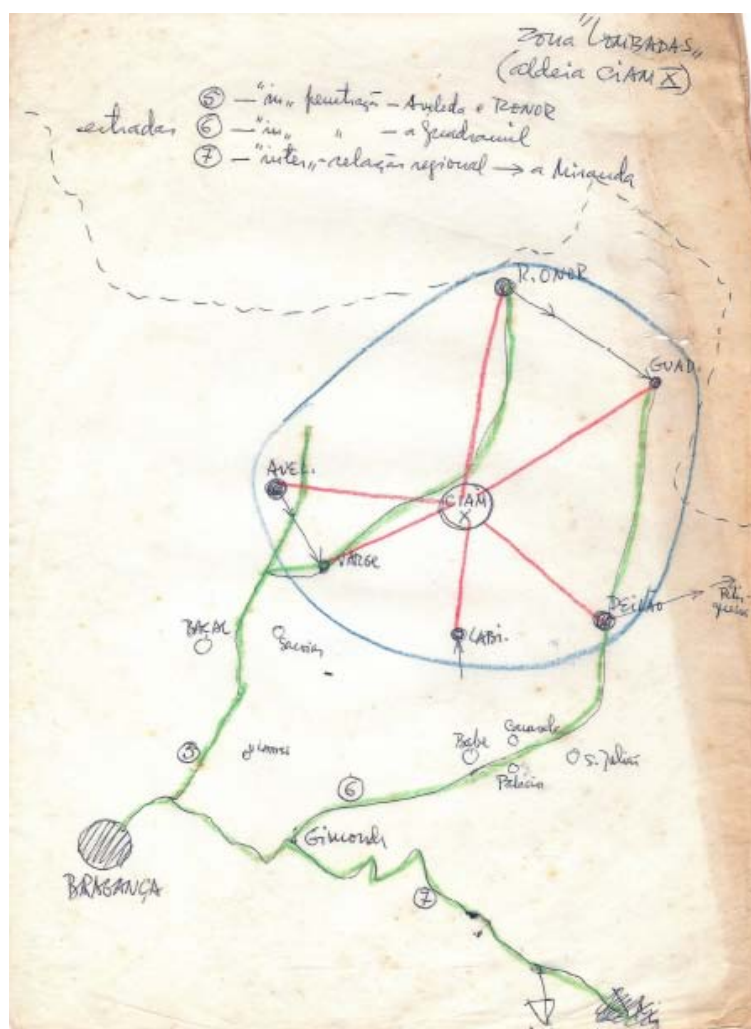 Zona "LOMBADAS"
(aldeia CIAM X)
5 — "in" penetração — Aveleda e RIONOR
estradas 6 — "in" " — a Guadramil
7 — "inter"-relação regional → a Miranda
R. ONOR
GUAD.
AVEL.
CIAM
X
VARGE
DEILÃO
LABI.
BAÇAL
Sacoias
Babe
S. Julião
Palácios
5
6
Gimonde
BRAGANÇA
7